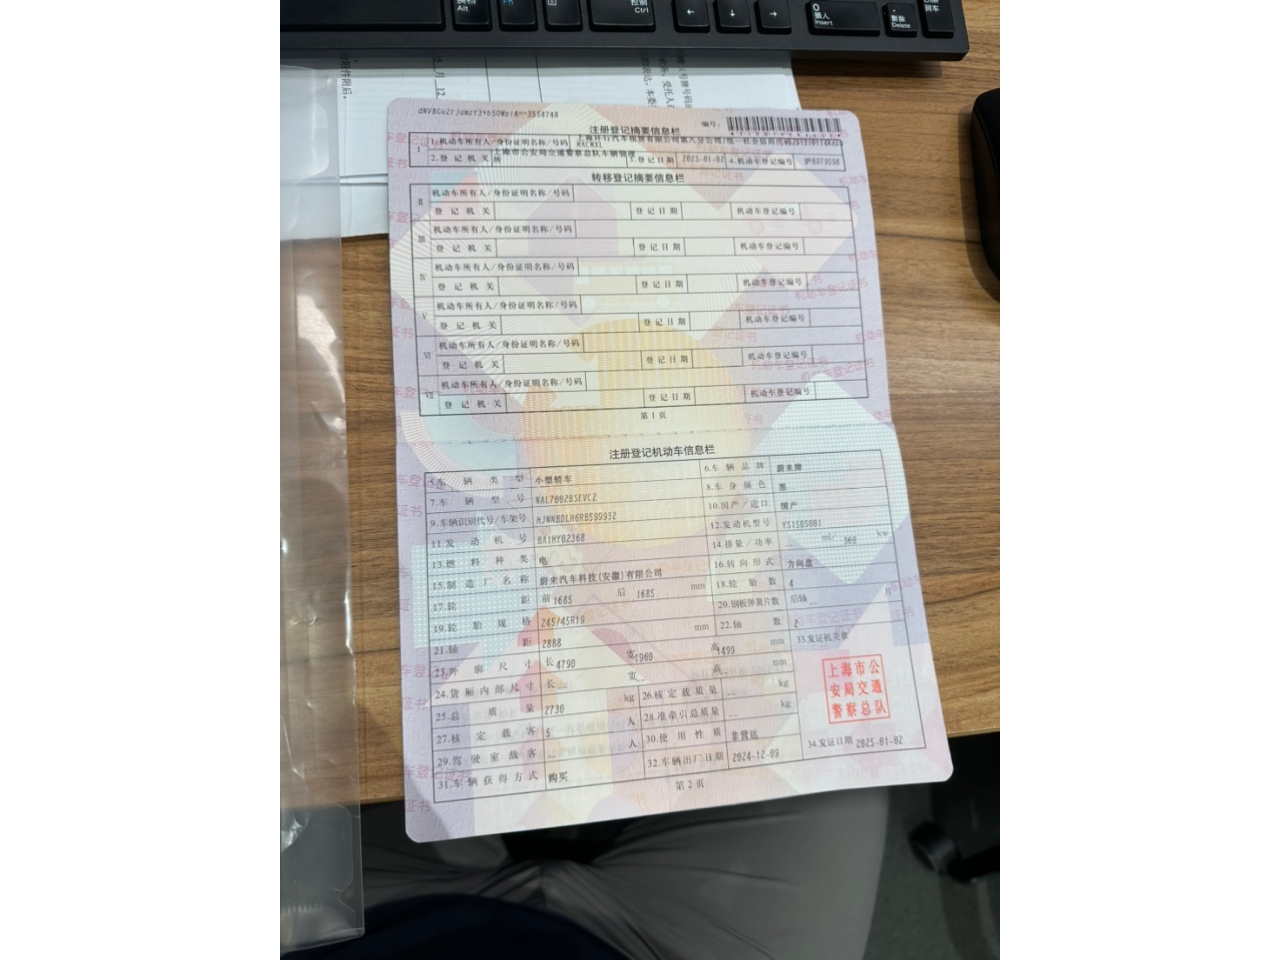 控制
Ctrl
Alt
Fn
←
↓
→
0
插入
Insert
删除
Delete
回车
附件附后。
月 12
注册登记摘要信息栏
编号:
I
1.机动车所有人/身份证明名称/号码
2.登记机关
上海市公安局交通警察总队车辆管理所
3.登记日期 2025-01-02
4.机动车登记编号
转移登记摘要信息栏
II
机动车所有人/身份证明名称/号码
登记机关 登记日期 机动车登记编号
III
机动车所有人/身份证明名称/号码
登记机关 登记日期 机动车登记编号
IV
机动车所有人/身份证明名称/号码
登记机关 登记日期 机动车登记编号
V
机动车所有人/身份证明名称/号码
登记机关 登记日期 机动车登记编号
VI
机动车所有人/身份证明名称/号码
登记机关 登记日期 机动车登记编号
VII
机动车所有人/身份证明名称/号码
登记机关 登记日期 机动车登记编号
第1页
注册登记机动车信息栏
5.车辆类型 小型轿车 6.车辆品牌 蔚来牌
7.车辆型号 8.车身颜色 黑
9.车辆识别代号/车架号 10.国产/进口 国产
11.发动机号 12.发动机型号
13.燃料种类 电 14.排量/功率 ml/ 360 kw
15.制造厂名称 蔚来汽车科技(安徽)有限公司 16.转向形式 方向盘
17.轮距 前 1685 后 1685 mm 18.轮胎数 4
19.轮胎规格 245/45R19 20.钢板弹簧片数 后轴 -- 片
21.轴距 2888 mm 22.轴数 2
23.外廓尺寸 长 4790 宽 1960 高 1499 mm 33.发证机关章
24.货厢内部尺寸 长 -- 宽 -- 高 -- mm
25.总质量 2730 kg 26.核定载质量 -- kg
27.核定载客 5 人 28.准牵引总质量 -- kg
29.驾驶室载客 -- 人 30.使用性质 非营运
31.车辆获得方式 购买 32.车辆出厂日期 2024-12-09
上海市公
安局交通
警察总队
34.发证日期 2025-01-02
第2页